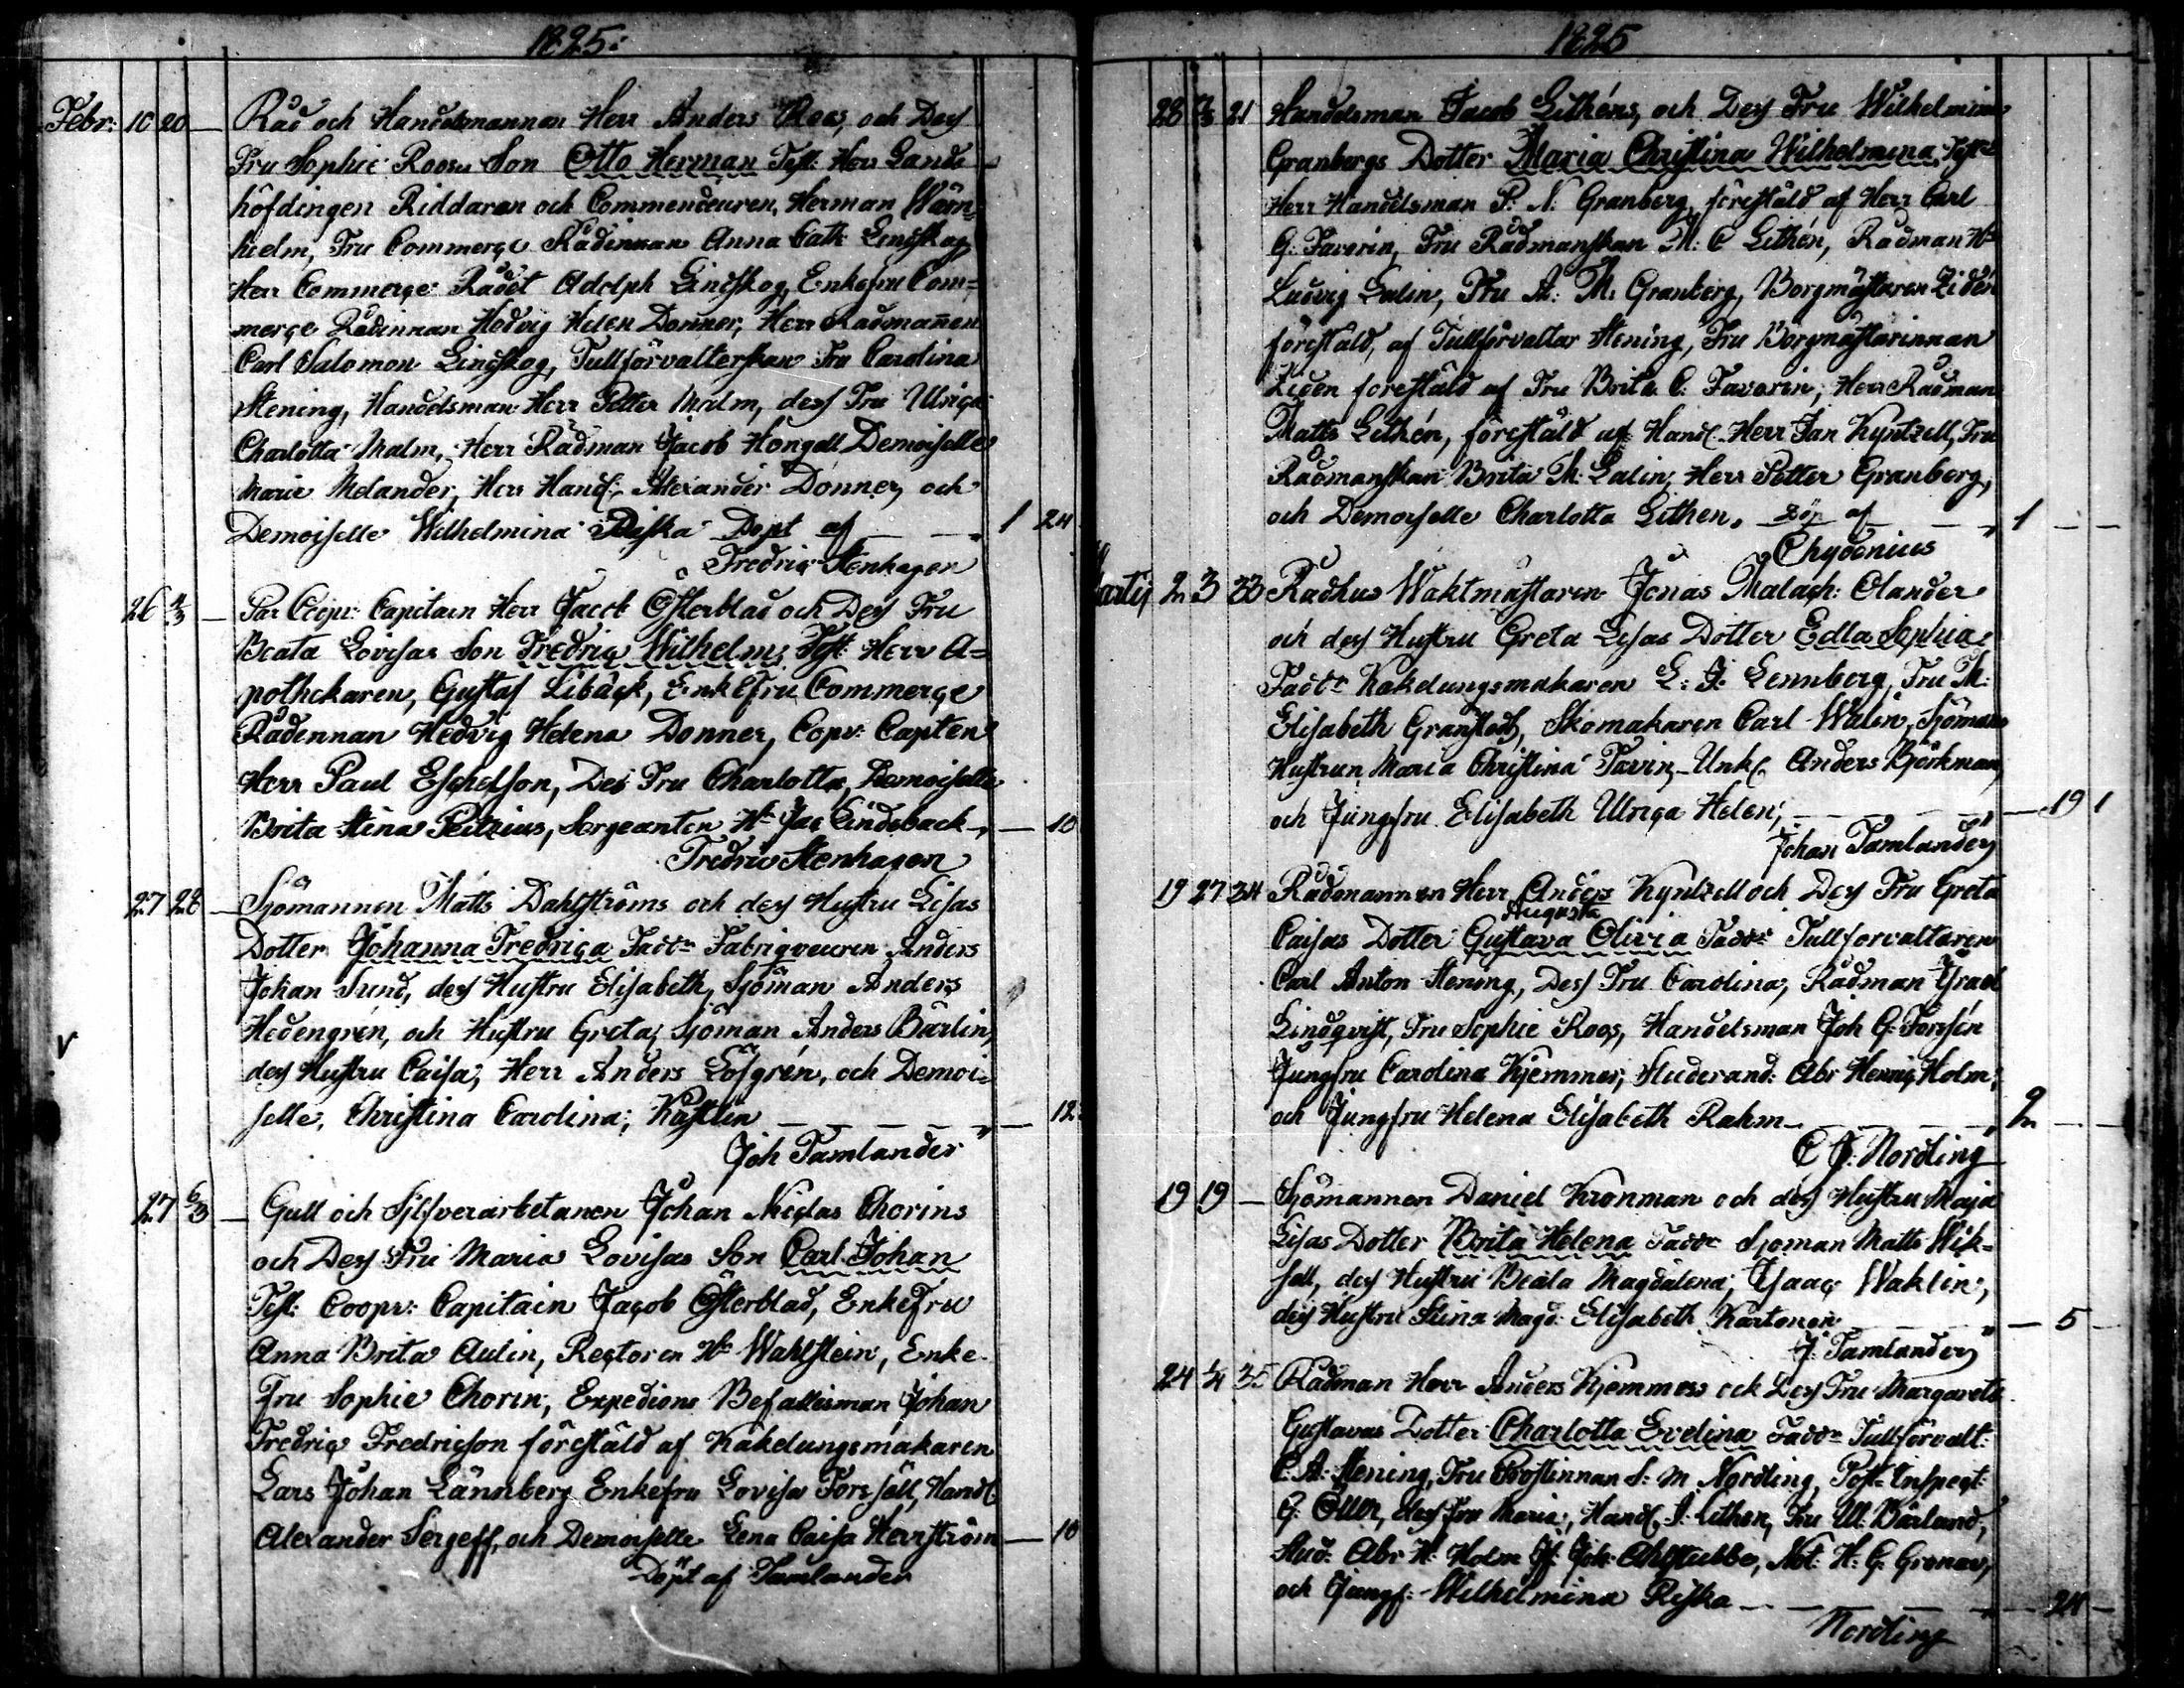 1825:
Febr: 10 20 Råd och Handelsmannen Herr Anders Roos, och Dess
Fru Sophie Roosu Son Otto Herman Test: Herr Lands
höfdingen Riddaren och Commendeuren, Herman Wärn
hielm, Fru Commerce Rådinnan Anna Cath: Lindskog,
Herr Commerce Rådet Adolph Lindskog, Enkefru Com=
merce Rådinnan Hedvig Helen Donner, Herr Rådmannen
Carl Salomon Lindskog, Tullförvalterskan Fru Carolina
Stening, Handelsman Herr Petter Malm, dess Fru Ulrica
Charlotta Malm, Herr Rådman Jacob Hongell Demoiselle
Maria Melander, Herr Handl: Alexander Donner, och
Demoiselle Wilhelmina Riska Döpt af 1 24
Fredric Stenhagen
26 4/3 Par Coop: Capitain Herr Jacob Österblad och Dess Fru
Beata Lovisas Son Fredric Wilhelm, Test: Herr A=
pothekaren, Gustaf Libäck, Enkefru Commerce
Rådennan Hedvig Helena Donner, Copv: Capten
Herr Paul Eschelson, Des Fru Charlotta, Demoiselle
Brita Stina Peitzius, Sergeanten Hr Jac Lindeback 10
Fredric Stenhagen
27 28 Sjömannen Matts Dahlströms och dess Hustru Lisas
Dotter Johanna Fredrica Faddr Fabriqveuren Anders
Johan Sund, dess Hustru Elisabeth, Sjöman Anders
Hedengrén, och Hustru Greta, Sjöman Anders Bärlin,
dess Hustru Caisa, Herr Anders Löfgrén, och Demoi=
selle, Christina Carolina, Kastlin 12
Joh Tamlander
V
27 6/3 Gull och Silfverarbetanen Johan Niclas Chorins
och Dess Fru Maria Lovisas Son Carl Johan
Test: Coopv: Capitain Jacob Österblad, Enkefru
Anna Brita Aulin, Rectoren Hr Wahlstein, Enke
Fru Sophie Chorin, Expedions Befallisman Johan
Fredric Fredricson förestäld af Kakelungsmakaren
Lars Johan Lännberg Enkefru Lovisa Forssell, Handl
Alexander Sergeff, och Demoiselle Lena Caisa Herrström 10
Döpt af Tamlander
1825
28 21 Handelsman Jacob Lithéns, och Dess Fru Wilhelmina
Granbergs Dotter Maria Christina Wilhelmina, Test:
Herr Handelsman P: N: Granberg förestäld af Herr Carl
G: Favorin, Fru Rådmanskan M: C Lithén, Rådman Hr
Ludvig Galin, Fru A: M: Granberg, Borgmästaren Zidén
förestäld, af Tullförvaltar Stening, Fru Borgmästarinnan
Ziden forestäld af Fru Brita C: Favorin, Herr Rådman
Matts Lithén, förestäld af Handl. Herr Jan Kyntzell, Fru
Rådmanskan Brita M: Galin, Herr Petter Granberg,
och Demoiselle Charlotta Lithen, döp af 1
Chydenius
Martij 2 3 33 Rådhus Waktmästaren Jonas Malach: Olander
och dess Hustru Greta Lisas Dotter Edla Sophia
Faddr Kakelungsmakaren L: J: Lennberg, Fru M:
Elisabeth Granstedt, Skomakaren Carl Walin, Sjömans
Hustrun Maria Christina Tavin, Unkl. Anders Björkman,
och Jungfru Elisabeth Ulrica Helen, 19 1
Johan Tamlander
19 27 34 Rådmannen Herr Anders Kyntzell och Dess Fru Greta
Augusta
Caisas Dotter Gustava Olivia Faddr Tullforvaltaren
Carl Anton Stening, Dess Fru Carolina, Rådman Israel
Lindqvist, Fru Sophie Roos, Handelsman Joh G: Forssén
Jungfru Carolina Kjemmer, Studerand: Abr Henric Holm,
och Jungfru Helena Elisabeth Rahm 2
C J: Nording
19 19 Sjömannen Daniel Kronman och dess Hustru Maja
Lisas Dotter Brita Helena Faddr Sjoman Matts Wik=
sell, dess Hustru Beata Magdalena, Isaac Waklin,
dess Hustru Stina Magd: Elisabeth Kartonen 5
J. Tamlander
24 1/4 35 Rådman Herr Anders Kjemmess ock Dess Fru Margareta
Gustavas Dotter Charlotta Evelina Faddr Tullförvalt:
C A: Stening, Fru Prostinnan S: M Nording, Post-Inspect
G: Öller, dess Fru Maria, Handl. J: Lithen, Fru Ul: Bärlund,
Stud: Abr H: Holm Joh Ahlstubbe, Not: H: G: Gronov,
och Jungf: Wilhelmina Riska 24
Nording